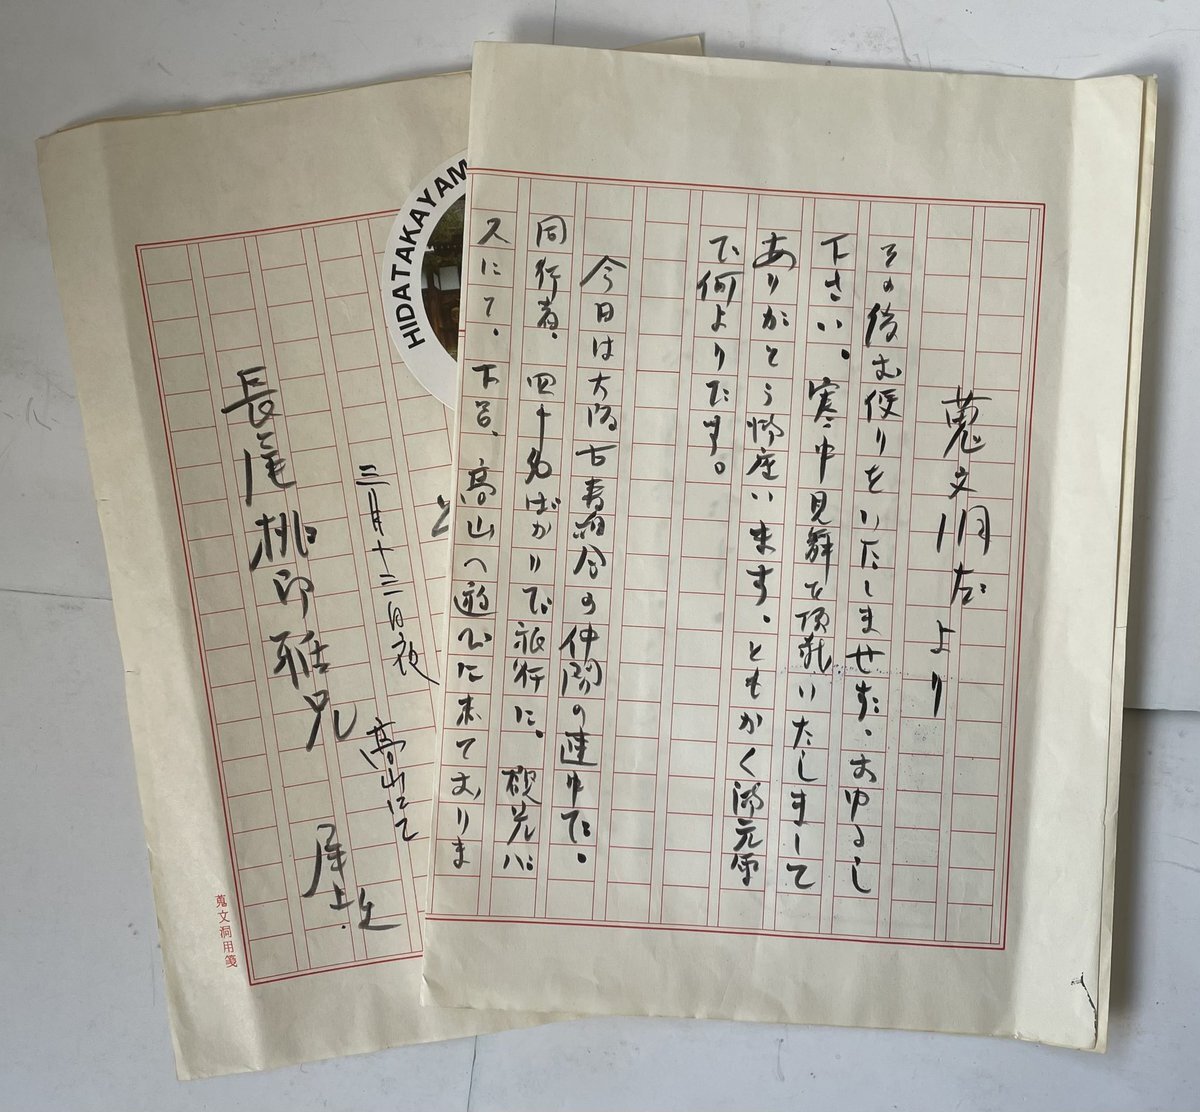 蒐文洞だより
その後お便りをいたしませず、おゆるし
下さい。寒中見舞を頂戴いたしまして
ありがとう御座います。ともかく御元気
で何よりです。
今日は大阪古書組合の仲間の連中で。
同行者、四十名ばかりで旅行に。観光バ
スにて。下呂、高山へ遊びに来ておりま
HIDATAKAYAM
三月十三日夜 高山にて
尾上生
長尾桃印雅兄
蒐文洞用箋